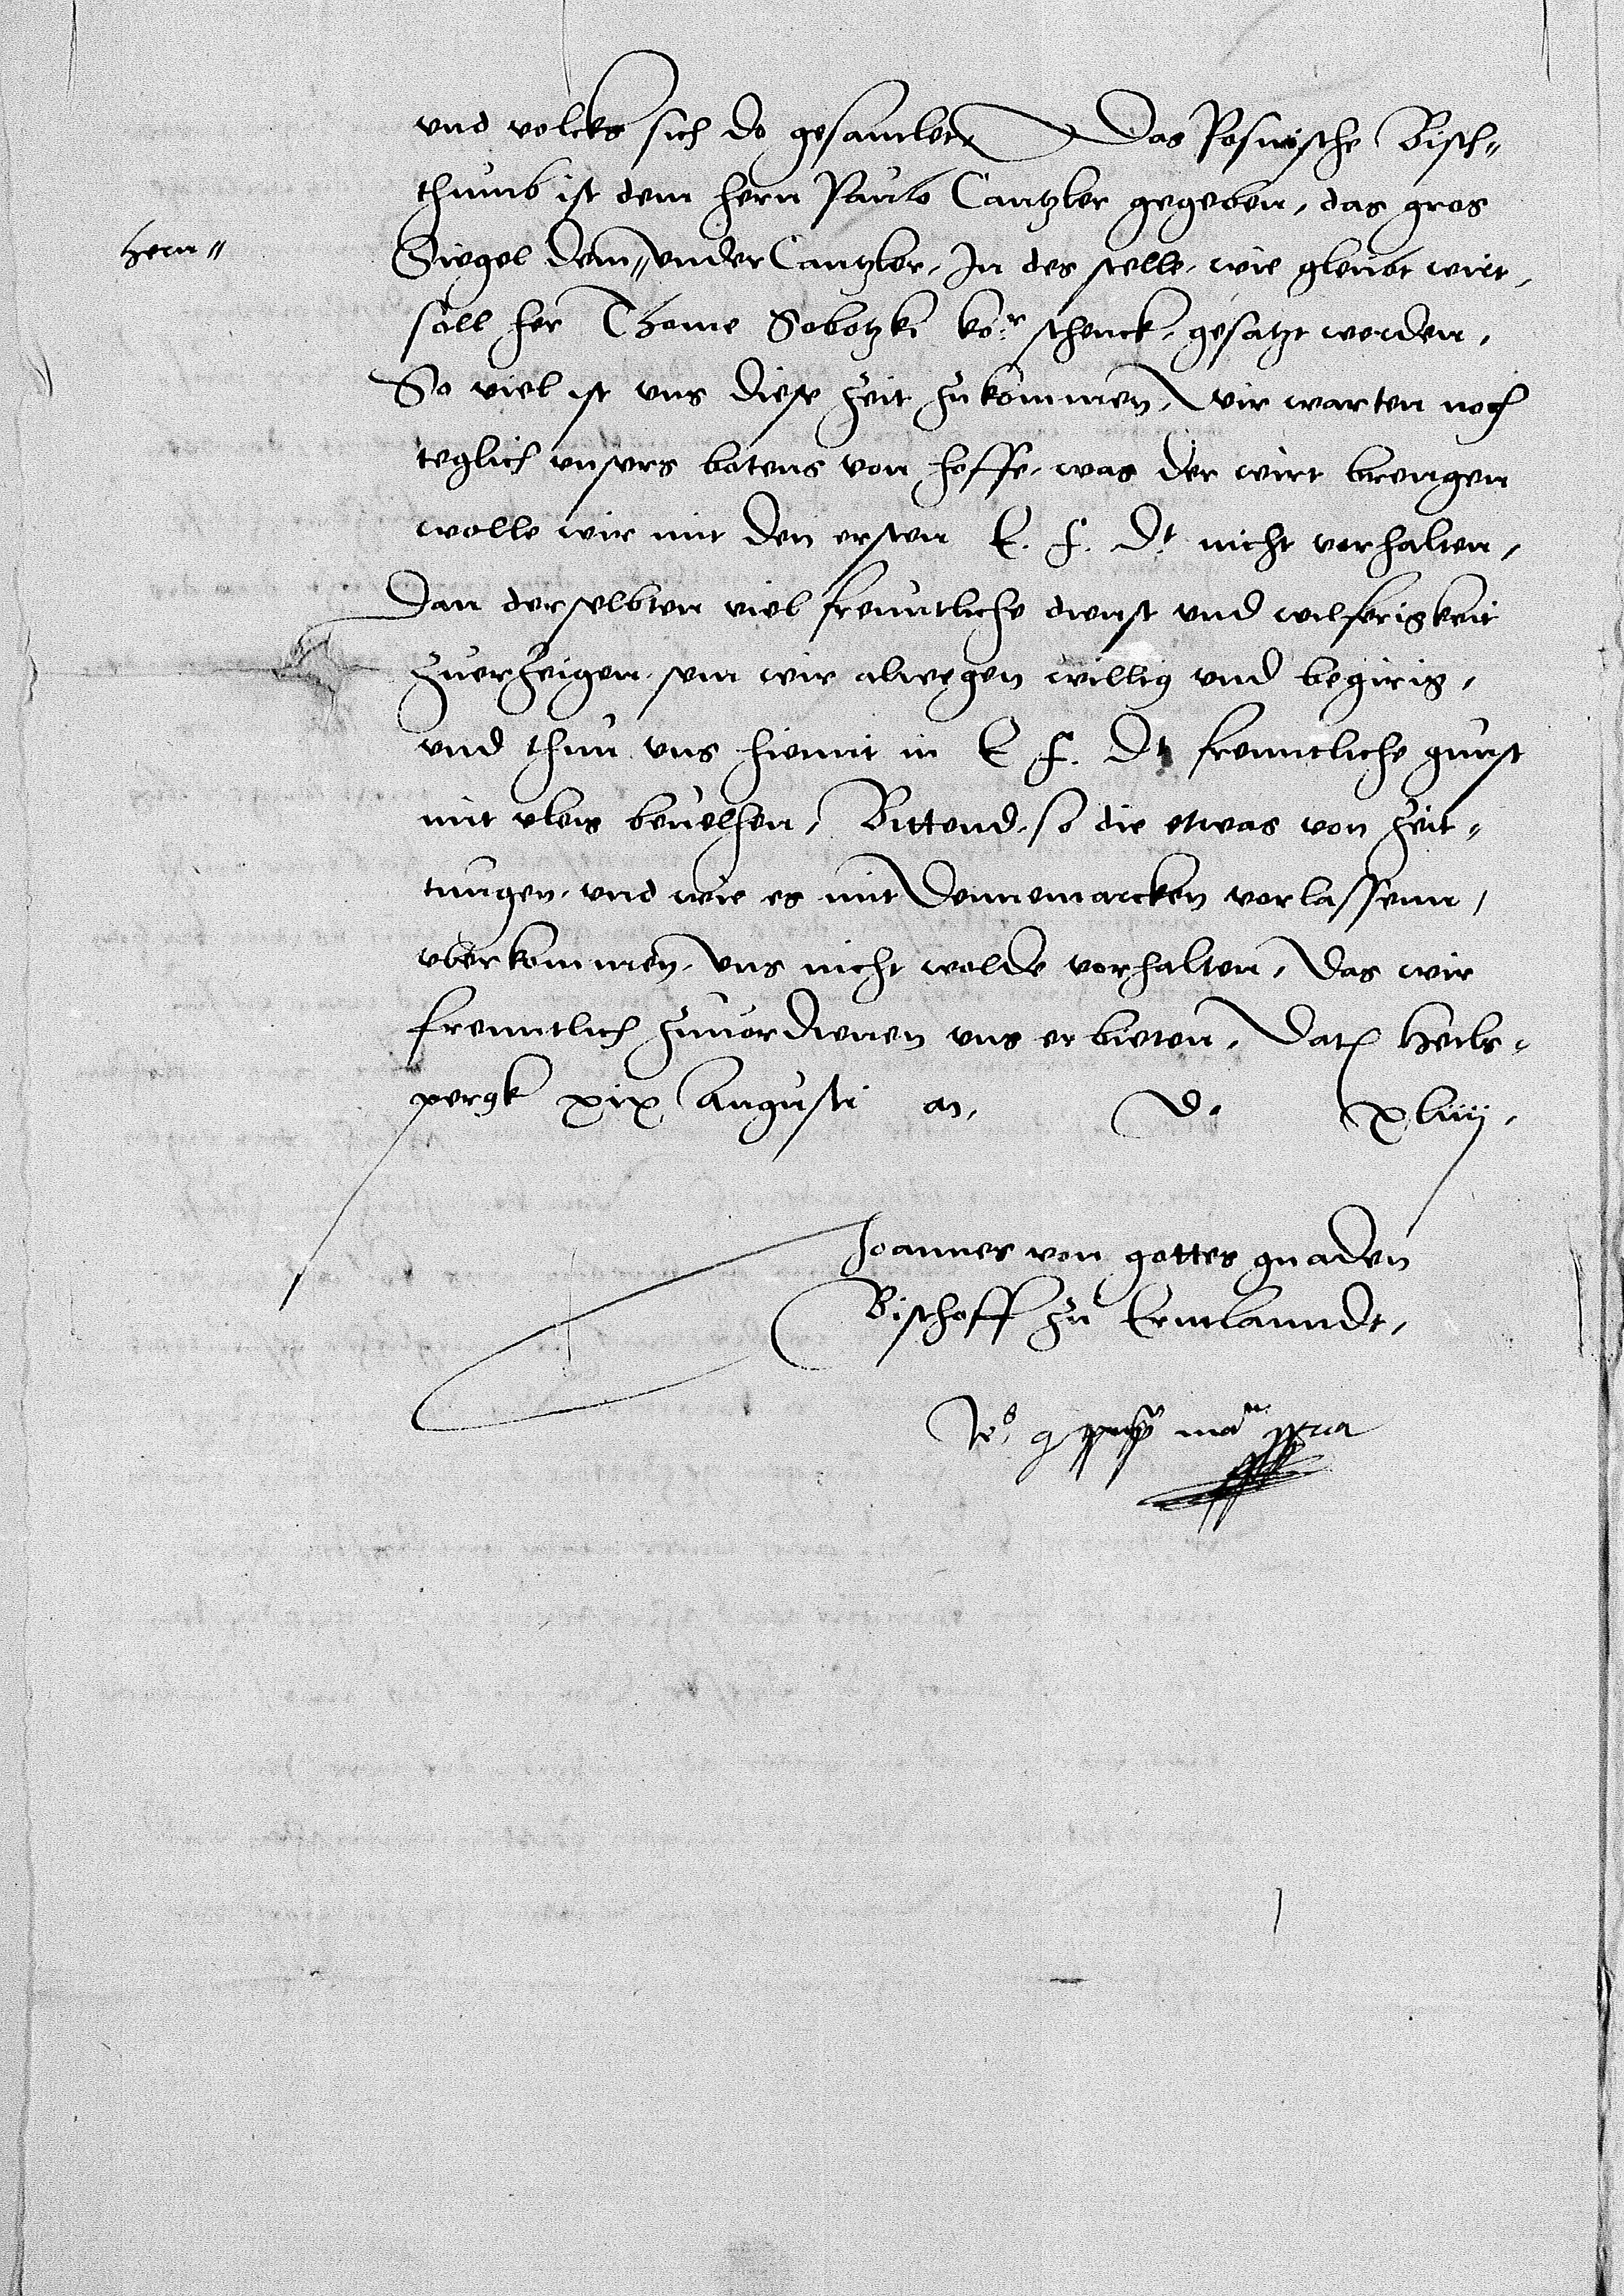 und volcks sich do gesamlet. Das Posnische Bisch-
thumb ist dem hern Paulo Cantzler gegeben, das gros
hern"
Siegel dem " under Cantzler, In des stelle, wie gleubt wirt,
soll her Thome Sobotzki ko:r schenck, gesatzt werden,
So viel ist uns diese zeit zukommen, wir warten noch
teglich unsers botens von hoffe, was der wirt brengen
wolle wir mit den ersten E. f. Dt nicht vorhalten,
Dan derselbten viel freuntliche dienst und wilferigkeit
zuerzeigen, sein wir alwegen willig und begirig,
und thun uns hiemit in E f. Dt freuntliche gunst
mit vleis bevelhen, Bittend, so die etwas von zeit-
tungen, und wie es mit Dennemarcken vorlassenn,
uberkommen, uns nicht wolde vorhalten, Das wir
freuntlich zuvordienen uns erbieten, Datum Heils-
pergk xix Augusti an. d. xliiij.
Joannes von gottes gnaden
Bischoff zu Ermlanndt,